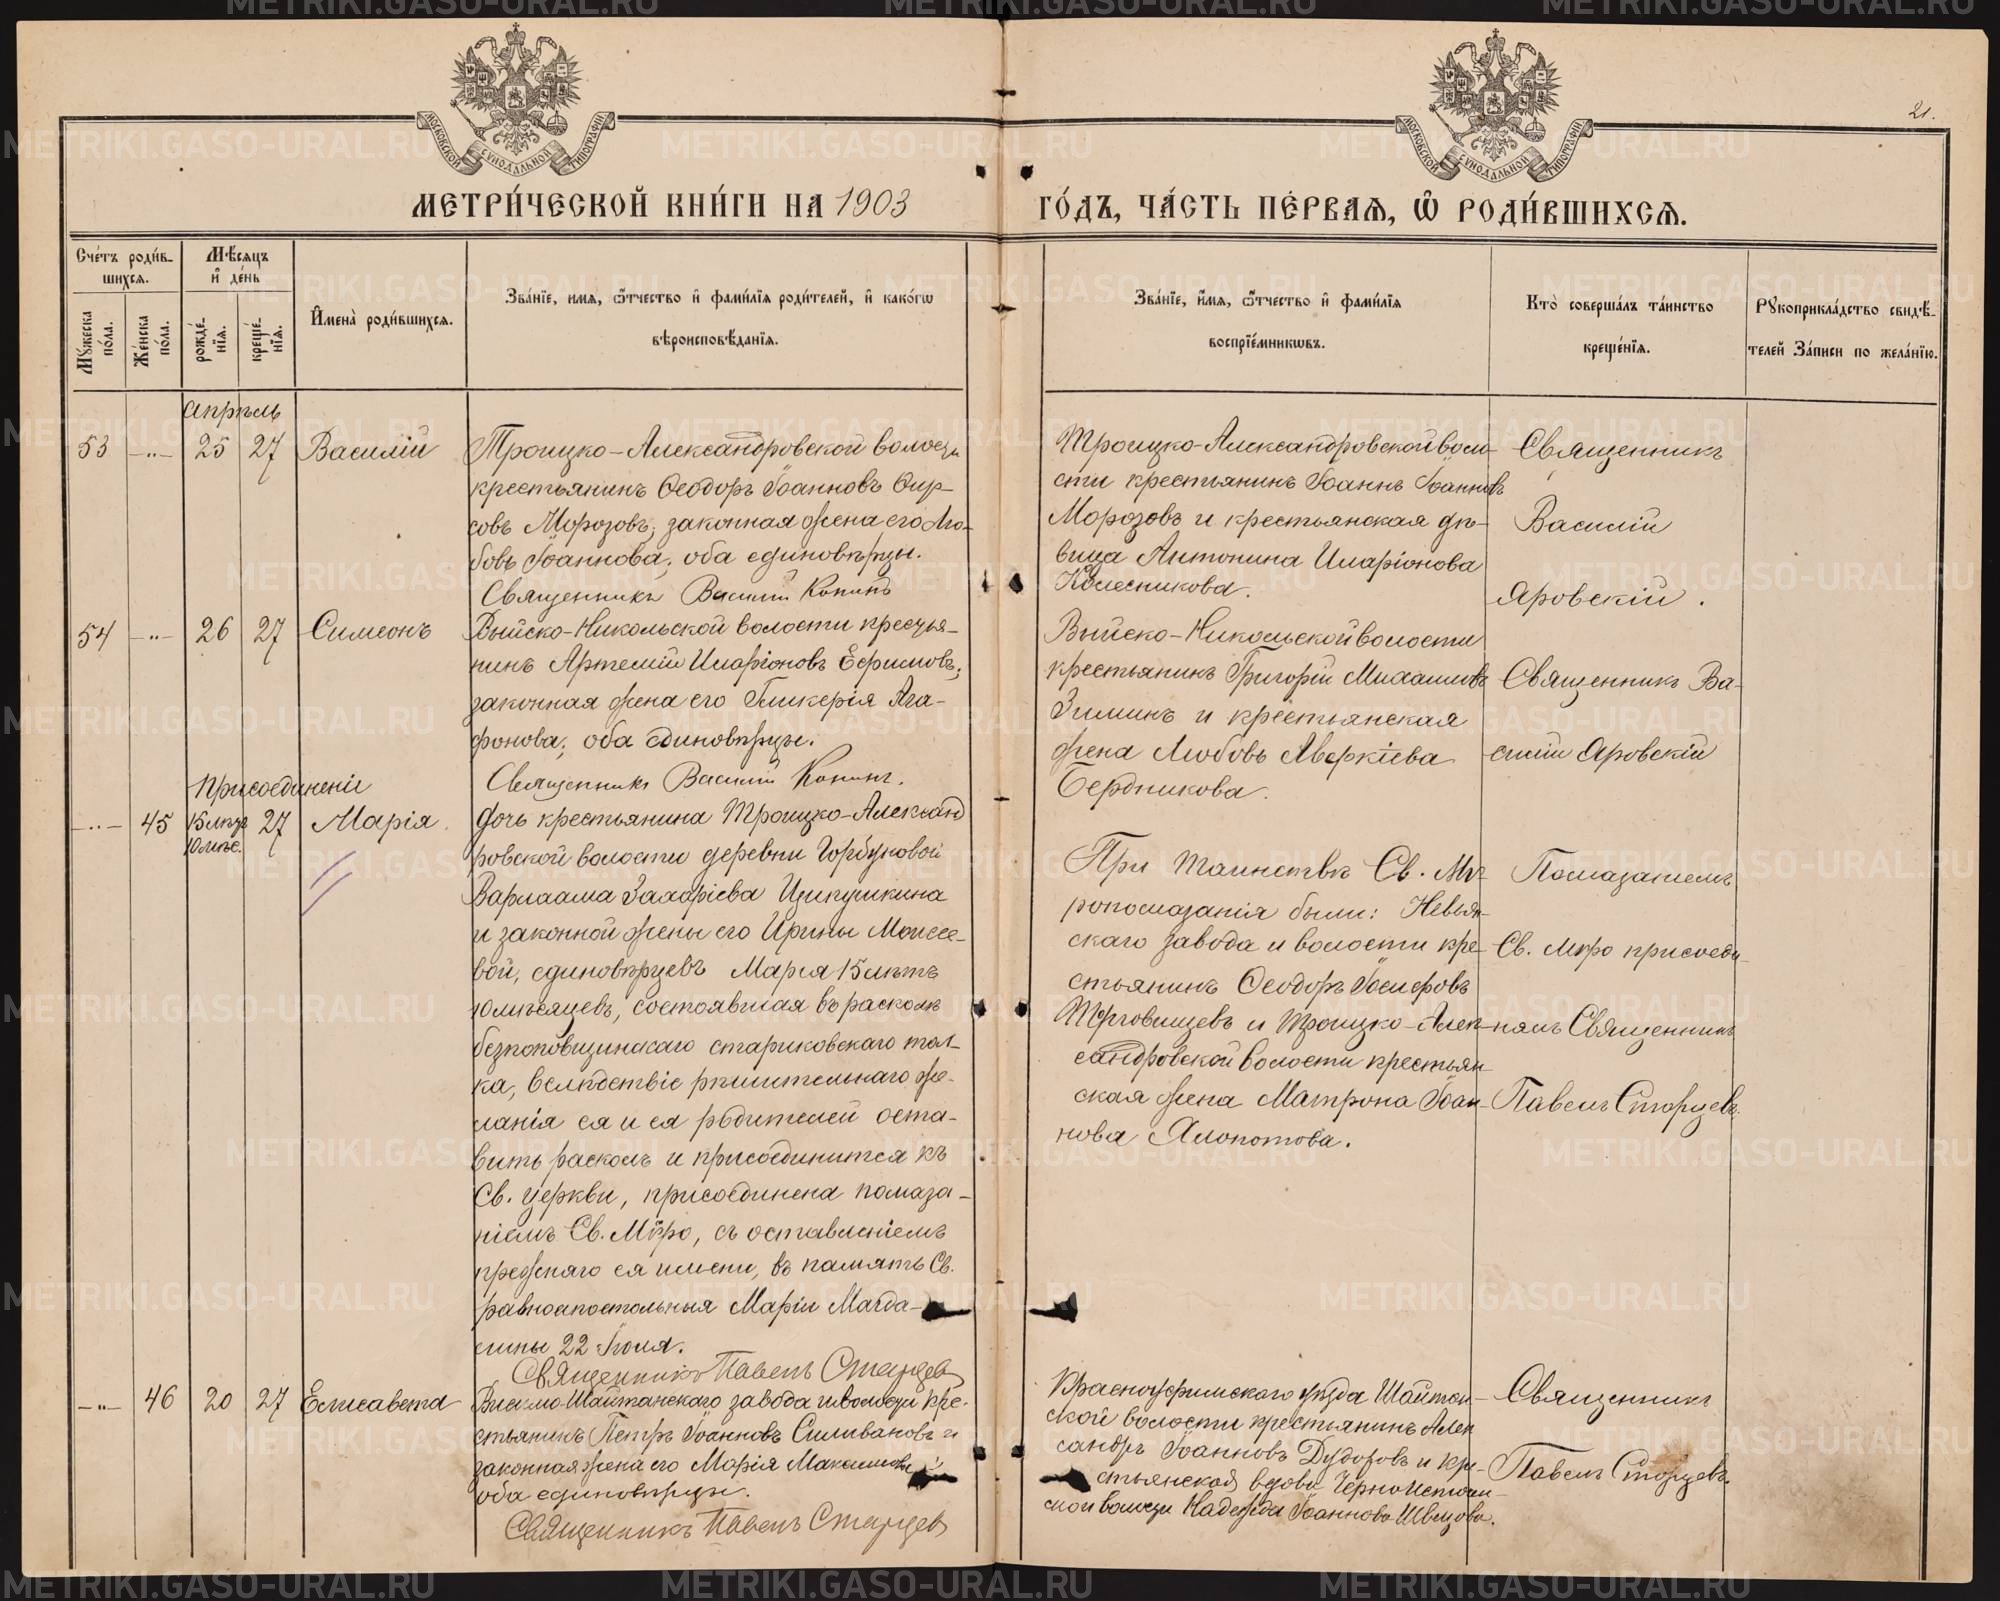 21.
МОСКОВСКОЙ СУНОДАЛЬНОЙ ТИПОГРАФІИ
МОСКОВСКОЙ СУНОДАЛЬНОЙ ТИПОГРАФІИ
МЕТРИ́ЧЕСКОЙ КНИ́ГИ НА 1903
ГО́ДЪ, ЧА́СТЬ ПЕ́РВАѦ, Ѡ҆ РОДИ́ВШИХСѦ.
Сче́тъ роди́в-
шихсѧ.
Мѣ́сѧцъ
и҆ де́нь
Мꙋжеска по́ла.
Же́нска по́ла.
рожде́-нїѧ.
креще́-нїѧ.
И҆мена̀ роди́вшихсѧ.
Зва́нїе, имѧ, ѻ҆́тчество и҆ фами́лїѧ роди́телей, и҆ како́гѡ
вѣроисповѣ́данїѧ.
Зва́нїе, и҆́мѧ, ѻ҆́тчество и҆ фами́лїѧ
воспрїе́мникѡвъ.
Кто̀ соверша́лъ та́инство
креще́нїѧ.
Рꙋкоприкла́дство свидѣ́-
телей За́писи по жела́нїю.
Апрѣль
53 -"- 25 27 Василій
Троицко-Александровской волости
крестьянинъ Ѳеодоръ Іоанновъ Фир-
совъ Морозовъ; законная жена его Лю-
бовь Іоаннова; оба единовѣрцы.
Священникъ Василій Конинъ
Троицко-Александровской воло-
сти крестьянинъ Іоаннъ Іоанновъ
Морозовъ и крестьянская дѣ-
вица Антонина Иларіонова
Колесникова.
Священникъ
Василій
Яровскій.
54 -"- 26 27 Симеонъ
Выйско-Никольской волости кресть я-
нинъ Артемій Иларіоновъ Ефимовъ;
законная жена его Гликерія Ага-
фонова; оба единовѣрцы.
Священникъ Василій Конинъ.
Выйско-Никольской волости
крестьянинъ Григорій Михаиловъ
Зиминъ и крестьянская
жена Любовь Аверкіева
Бердникова.
Священникъ Ва-
силій Яровскій
Присоединеніе
-"- 45 15 лѣтъ 10 мѣс. 27 Марія.
дочь крестьянина Троицко-Александ
ровской волости деревни Горбуновой
Варлаама Захаріева Ципушкина
и законной жены его Ирины Моисее-
вой, единовѣрцевъ Марія 15 лѣтъ
10 мѣсяцевъ, состоявшая въ расколѣ
безпоповщинскаго стариковскаго тол-
ка, вслѣдствіе рѣшительнаго же-
ланія ея и ея родителей оста-
вить расколъ и присоединится къ
Св. Церкви, присоединена помаза-
ніемъ Св. Мѵро, съ оставленіемъ
прежняго ея имени, въ память Св.
равноапостольныя Маріи Магда-
лины 22 Іюля.
Священникъ Павелъ Старцевъ
При таинствѣ Св. Му-
ропомазанія были: Невьян-
скаго завода и волости кре-
стьянинъ Ѳеодоръ Іосифовъ
Торговищевъ и Троицко-Алек-
сандровской волости крестьян-
ская жена Матрона Іоан-
нова Холопотова.
Помазаніемъ
Св. Мѵро присоеди-
нялъ Священникъ
Павелъ Старцевъ.
-"- 46 20 27 Елисавета
Висимо-Шайтанскаго завода и волости кре-
стьянинъ Петръ Іоанновъ Силивановъ и
законная жена его Марія Максимова
оба единовѣрцы.
Священникъ Павелъ Старцевъ
Красноуфимскаго уѣзда Шайтан-
ской волости крестьянинъ Алек
сандръ Іоанновъ Дудоровъ и кре-
стьянская вдова Черноисточин-
ской волости Надежда Іоаннова Швецова.
Священникъ
Павелъ Старцевъ.